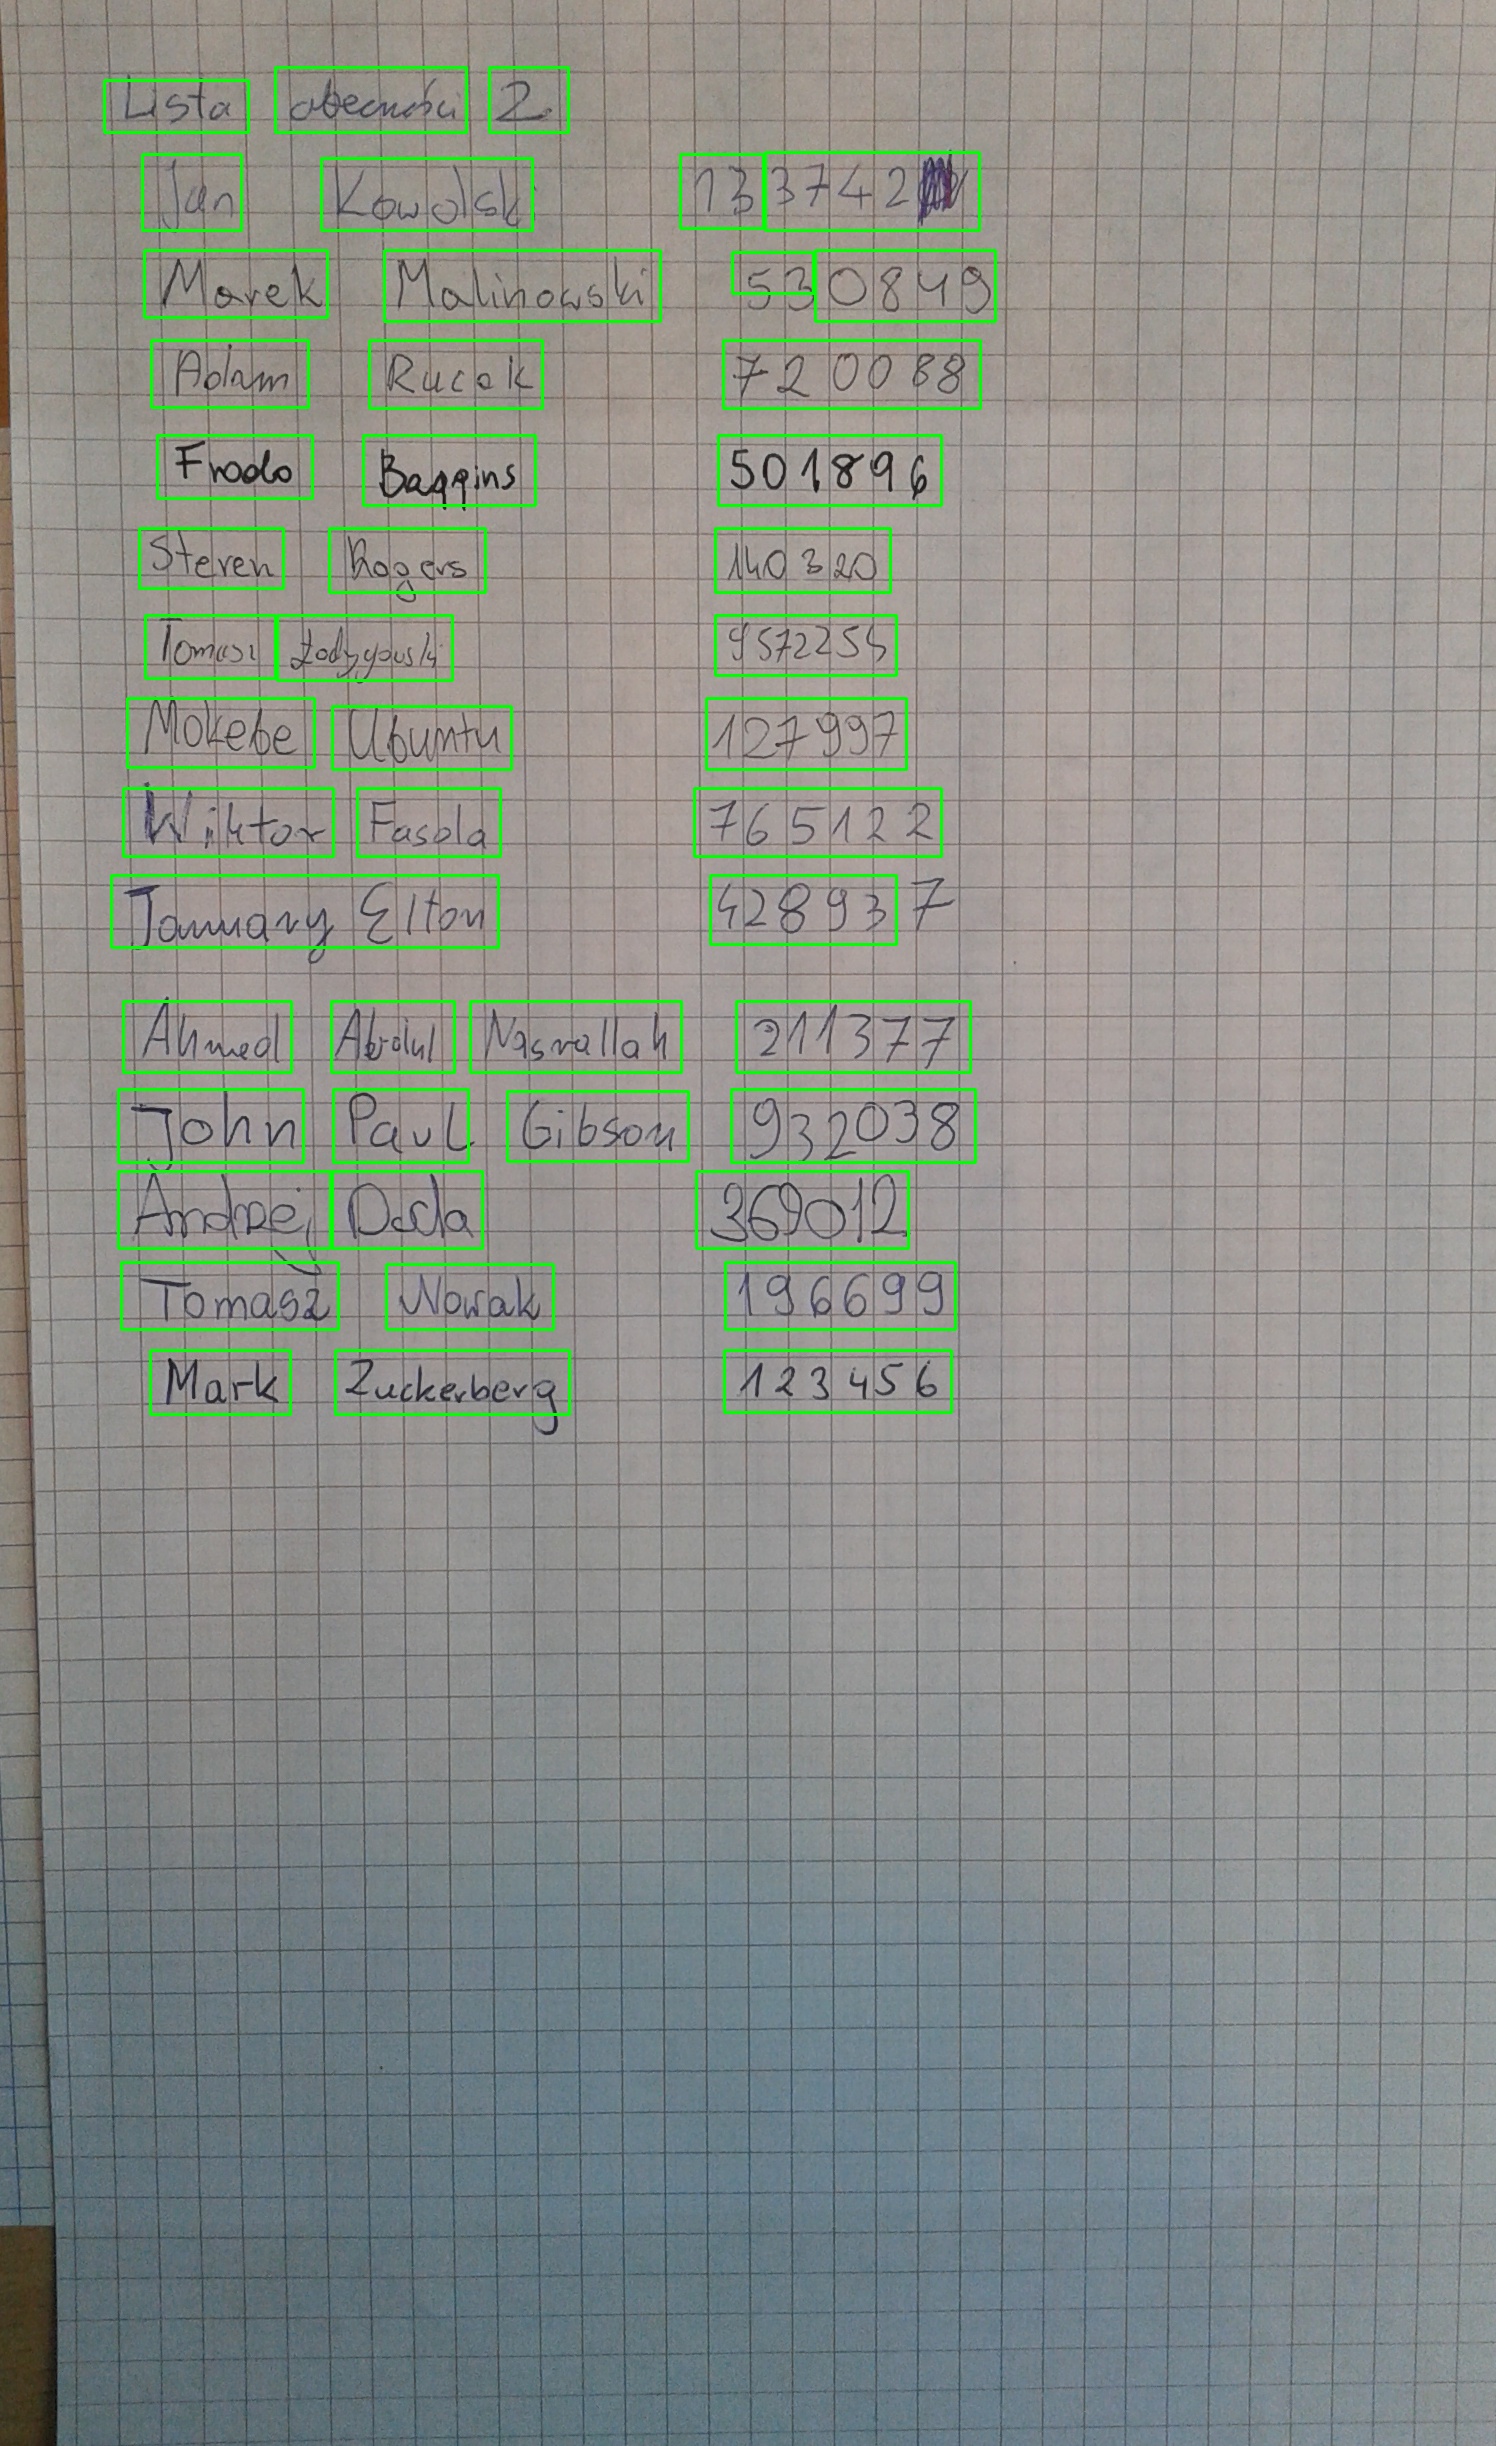 Lista obecności 2
Jan Kowalski 133742
Marek Malinowski 530849
Adam Rucak 720088
Frodo Baggins 501896
Steven Rogers 140320
Tomasz
Mokebe Ubuntu 127997
Wiktor Fasola 765122
January Elton 428937
Ahmed Abdul Nasrallah 211377
John Paul Gibson 932038
Andrzej Duda 369012
Tomasz Nowak 196699
Mark Zuckerberg 123456